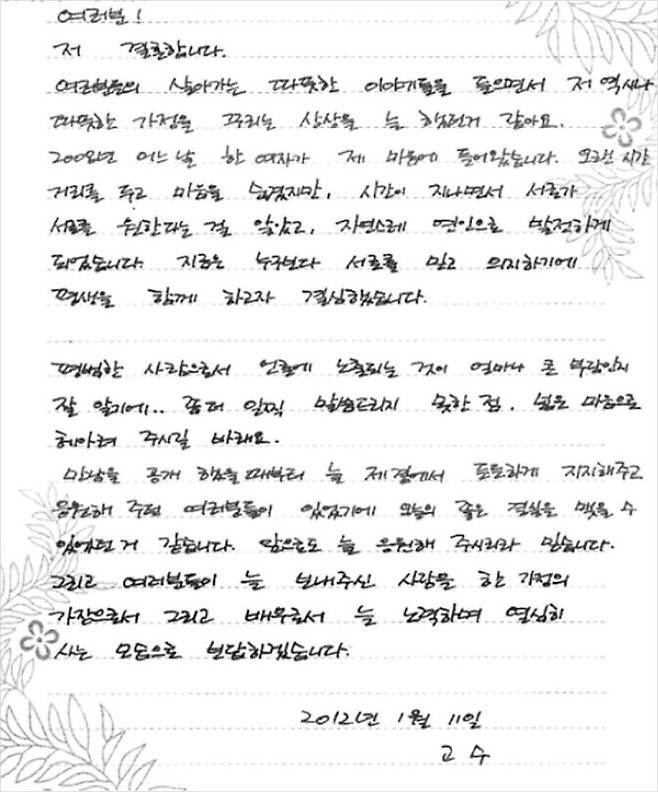 여러분!
저 결혼합니다.
여러분들의 살아가는 따뜻한 이야기들을 들으면서 저 역시나
따뜻한 가정을 꾸리는 상상을 늘 했던거 같아요.
2008년 어느날 한 여자가 제 마음에 들어왔습니다. 오랜 시간
거리를 두고 마음을 숨겼지만, 시간이 지나면서 서로가
서로를 원한다는 걸 알았고, 자연스레 연인으로 발전하게
되었습니다. 지금은 누구보다 서로를 믿고 의지하기에
평생을 함께 하고자 결심했습니다.
평범한 사람으로서 언론에 노출되는 것이 얼마나 큰 부담인지
잘 알기에.. 좀더 일찍 말씀드리지 못한 점, 넓은 마음으로
헤아려 주시길 바래요.
만남을 공개 했을때부터 늘 제곁에서 든든하게 지지해주고
응원해 주던 여러분들이 있었기에 오늘의 좋은 결실을 맺을 수
있었던거 같습니다. 앞으로도 늘 응원해 주시리라 믿습니다.
그리고 여러분들이 늘 보내주신 사랑을 한 가정의
가장으로서 그리고 배우로서 늘 노력하며 열심히
사는 모습으로 보답하겠습니다.
2012년 1월 11일
고수